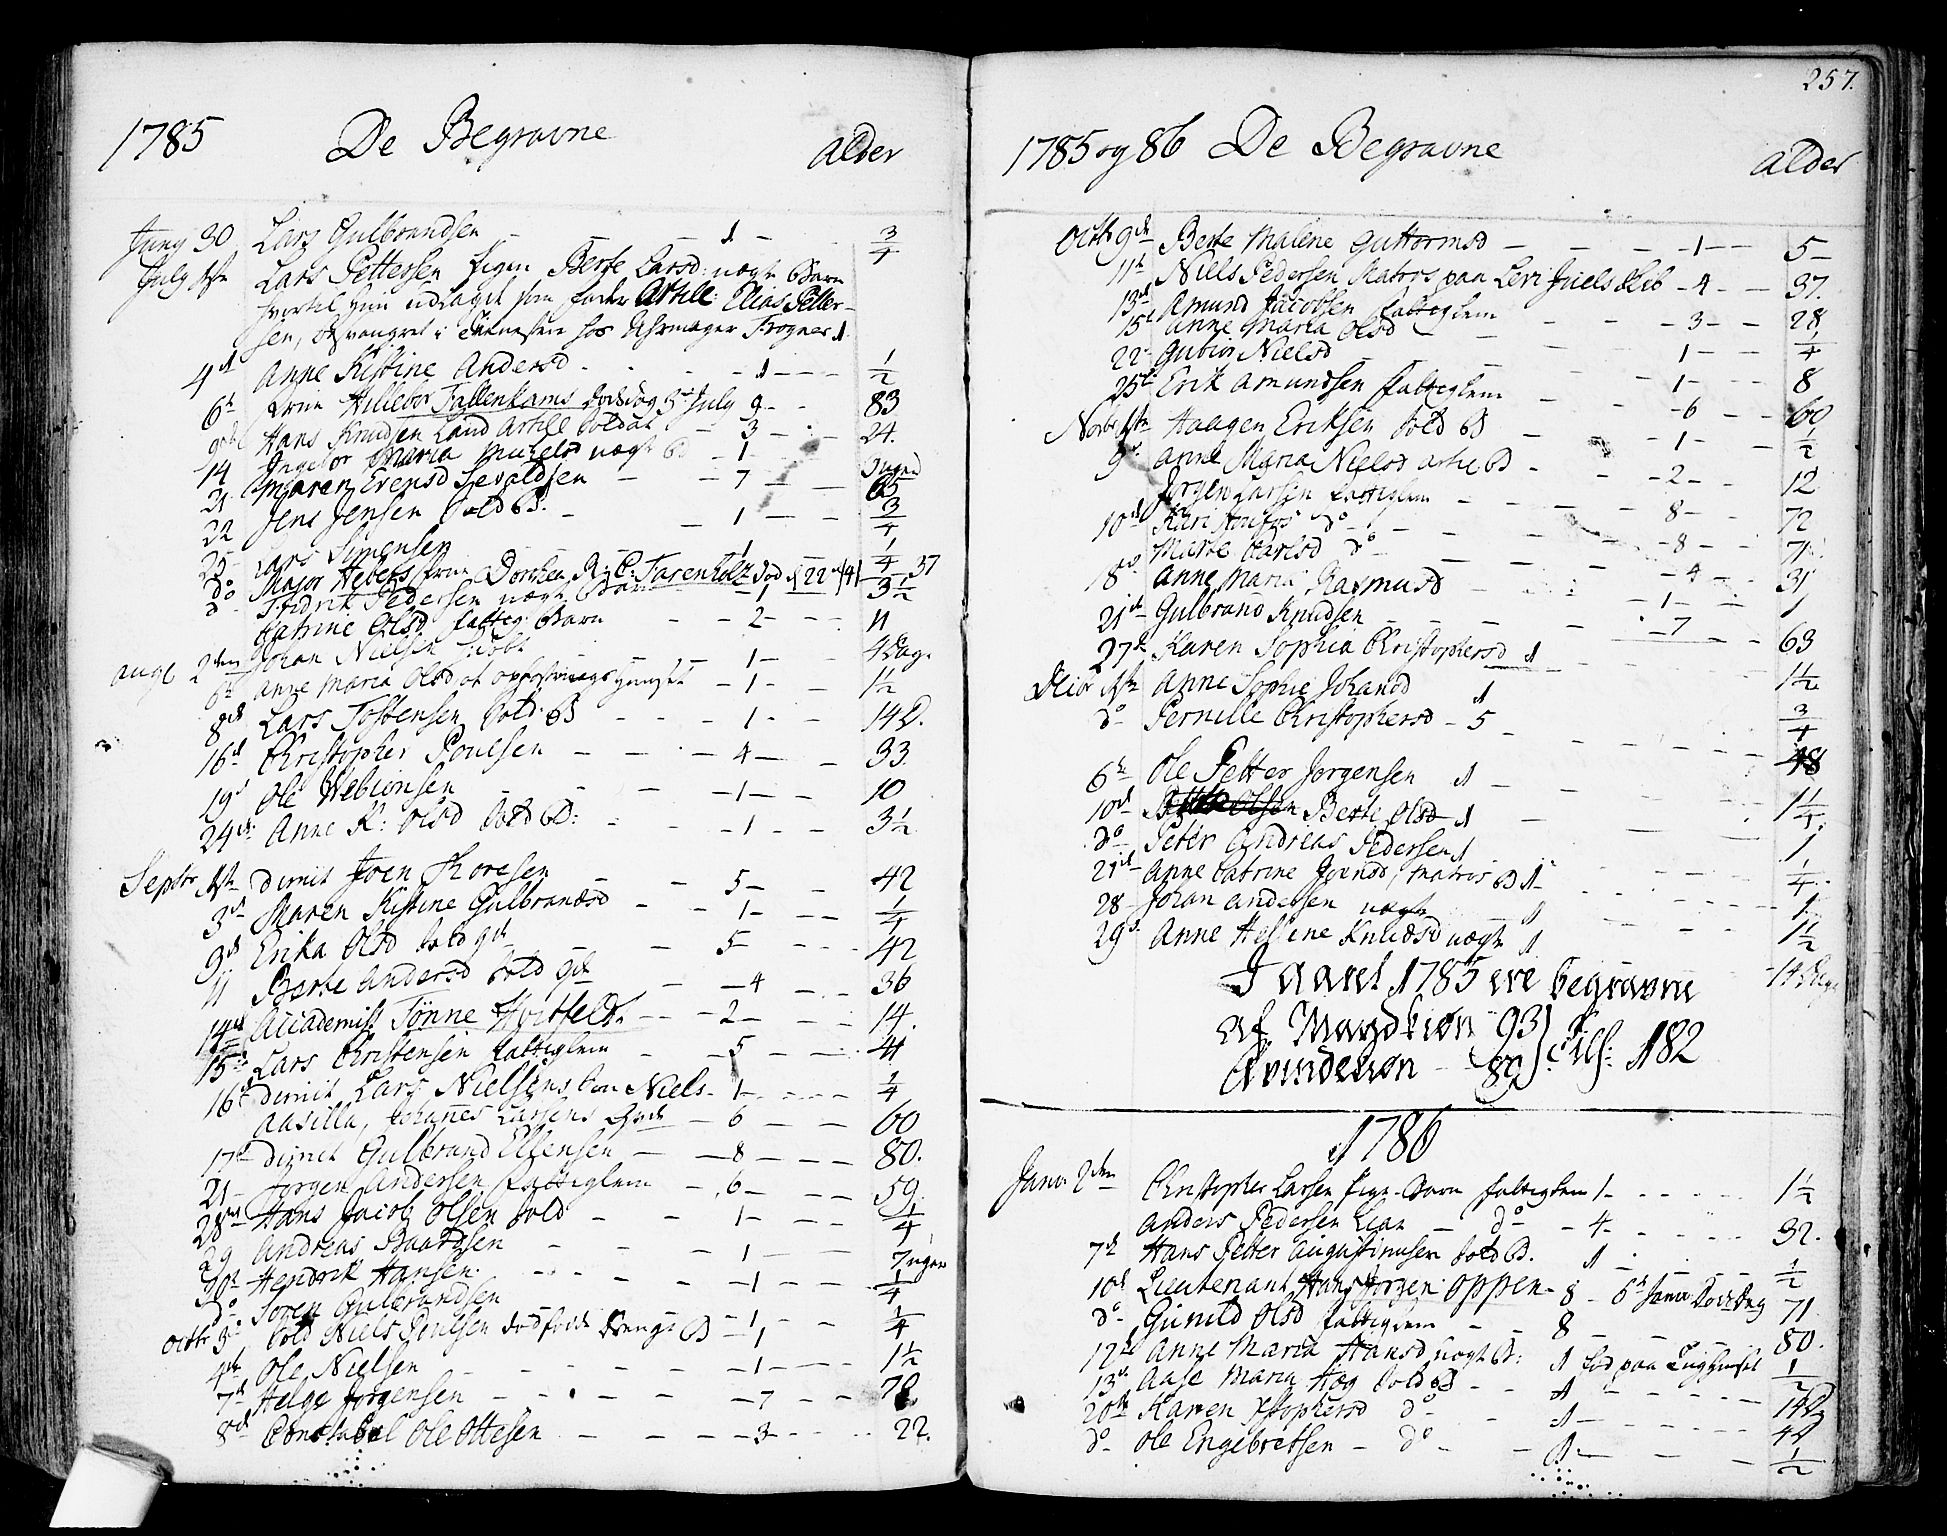 1785 De Begravne alder
Juny 30 Lars Gulbrandsen - 1 - 3/4
July 1ste Lars Pettersen Berte Larsd: uægte Barn
hvortil hun udlagde som fader Artill: Elias Petter-
sen, hos Uhrmager Trogner 1.
4de Anne Kistine Andersd - 1 - 1/2
6te Hillebor Fallenkams død 5te July 9 - 83
9de Hans Knudsen Land Artill Soldat - 3 - 24.
14 Ingebor Maria uægte B - 1 -
21 Maren Evensd Sevaldsen - 7 - 65
22 Jens Jensen Sold B. - 1 - 3/4
25 Lars Simensen - 1 - 1/4
do Major Hebers frue Dorthea R: C: Farenholz død d 22 37
do Fridrik Pedersen uægte Barn - 1 - 3 1/2
Katrine Olsd fattig Barn - 2 - 11
aug 2den Johan Nielsen - 1 - 4 dag.
6te Anne Maria Olsd - 1 - 1 1/2
8de Lars Tostensen Sold: B - 1 - 14 D.
16de Christopher Poulsen - 4 - 33.
19de Ole Hebionsen - 1 - 10
24de: Anne K: Olsd Sold B: - 1 - 3 1/2
Septbr 1ste Dimit Joen Thoresen - 5 - 42
3de Maren Kistine Gulbrandsd - 1 - 1/4
9de Erika Olsd Sold - 5 - 42
11 Berte Andersd Sold - 4 - 36
14de Academist Tønne Hvitfeldt - 2 - 14.
15de Lars Christensen fattiglem - 5 - 41
16de Dimit Lars Nielsens Søn Niels - 1 - 1/4
Aasilla, Johannes Larsens - 6 - 60
17de Dimit Gulbrand Ellensen - 8 - 80.
21 Jørgen Andersen fattiglem - 6 - 59.
28de Hans Jacob Olsen Sold - 1 - 1/4
29 Andreas Baardsen - 1 - 7 uger
30te Hendrik Hansen - 1 - 1/4
do Søren Gulbrandsen - 1 - 1/4
octbr 3de Sold Niels Poulsen B - 1
4de Ole Nielsen - 1 - 1 1/2
7de Helge Jørgensen - 7 - 78
8de Constabel Ole Ottesen - 3 - 22.
257.
1785 og 86 De Begravne alder
Octbr 9de Berte Malene Guttormsd - 1 - 5
11te Niels Pedersen Matros paa Levi Juels Skib - 4 - 37.
13de Amund Jacobsen fattiglem - 3 - 28
15de Anne Maria Olsd - 1 - 1/4
22 Gubiør Nielsd - 1 - 8
25de Erik Amundsen fattiglem - 6 - 60
Novbr 1ste Haagen Eriksen Sold B - 1 - 1/2
9de Anne Maria Nielsd B - 2 - 12
Jørgen Larsen fattiglem - 8 - 72
10de Kari do - 8 - 71
Marte Carlsd do - 4 - 31
18de Anne Maria Rasmusd - 1 - 1
21de Gulbrand Knudsen - 7 - 63
27de Karen Sophia Christophersd 1 - 1 1/2
Xbr 1ste Anne Sophie Johansd 1 - 3/4
do Pernille Christophersd - 5 - 48
6te Ole Petter Jørgensen 1 - 1 1/4
10de Berte Olsd 1 - 1
do Peter Andreas Pedersen 1 - 1/4
21de Anne Catrine Matros B 1 - 1
28 Johan Andersen uægte 1 - 1 1/2
29de Anne Hellene Knudsd uægte 1 - 14 Dage
I aaret 1785 ere begravne
af Mandkiøn 93
Qvindekiøn - 89 Tils: 182
1786
Janr 2den Christopher Larsen Barn fattiglem 1 - 1 1/2
Anders Pedersen Lian - do - 4 - 32.
7de Hans Petter Augustinusen Sold B. 1 - 1/2
10de Lieutenant Hans Jørgen Oppen - 8 - 6te Janr 71
do Gunild Olsd fattiglem - 8 - 80.
12te Anne Maria Hansd uægte B: 1 fød paa Tugthuset 1/2
13de Aase Maria Sold B - 1 - 14 D
20de Karen Xstophersd do 1 - 4
do Ole Engebretsen - do - 1 - 1/2